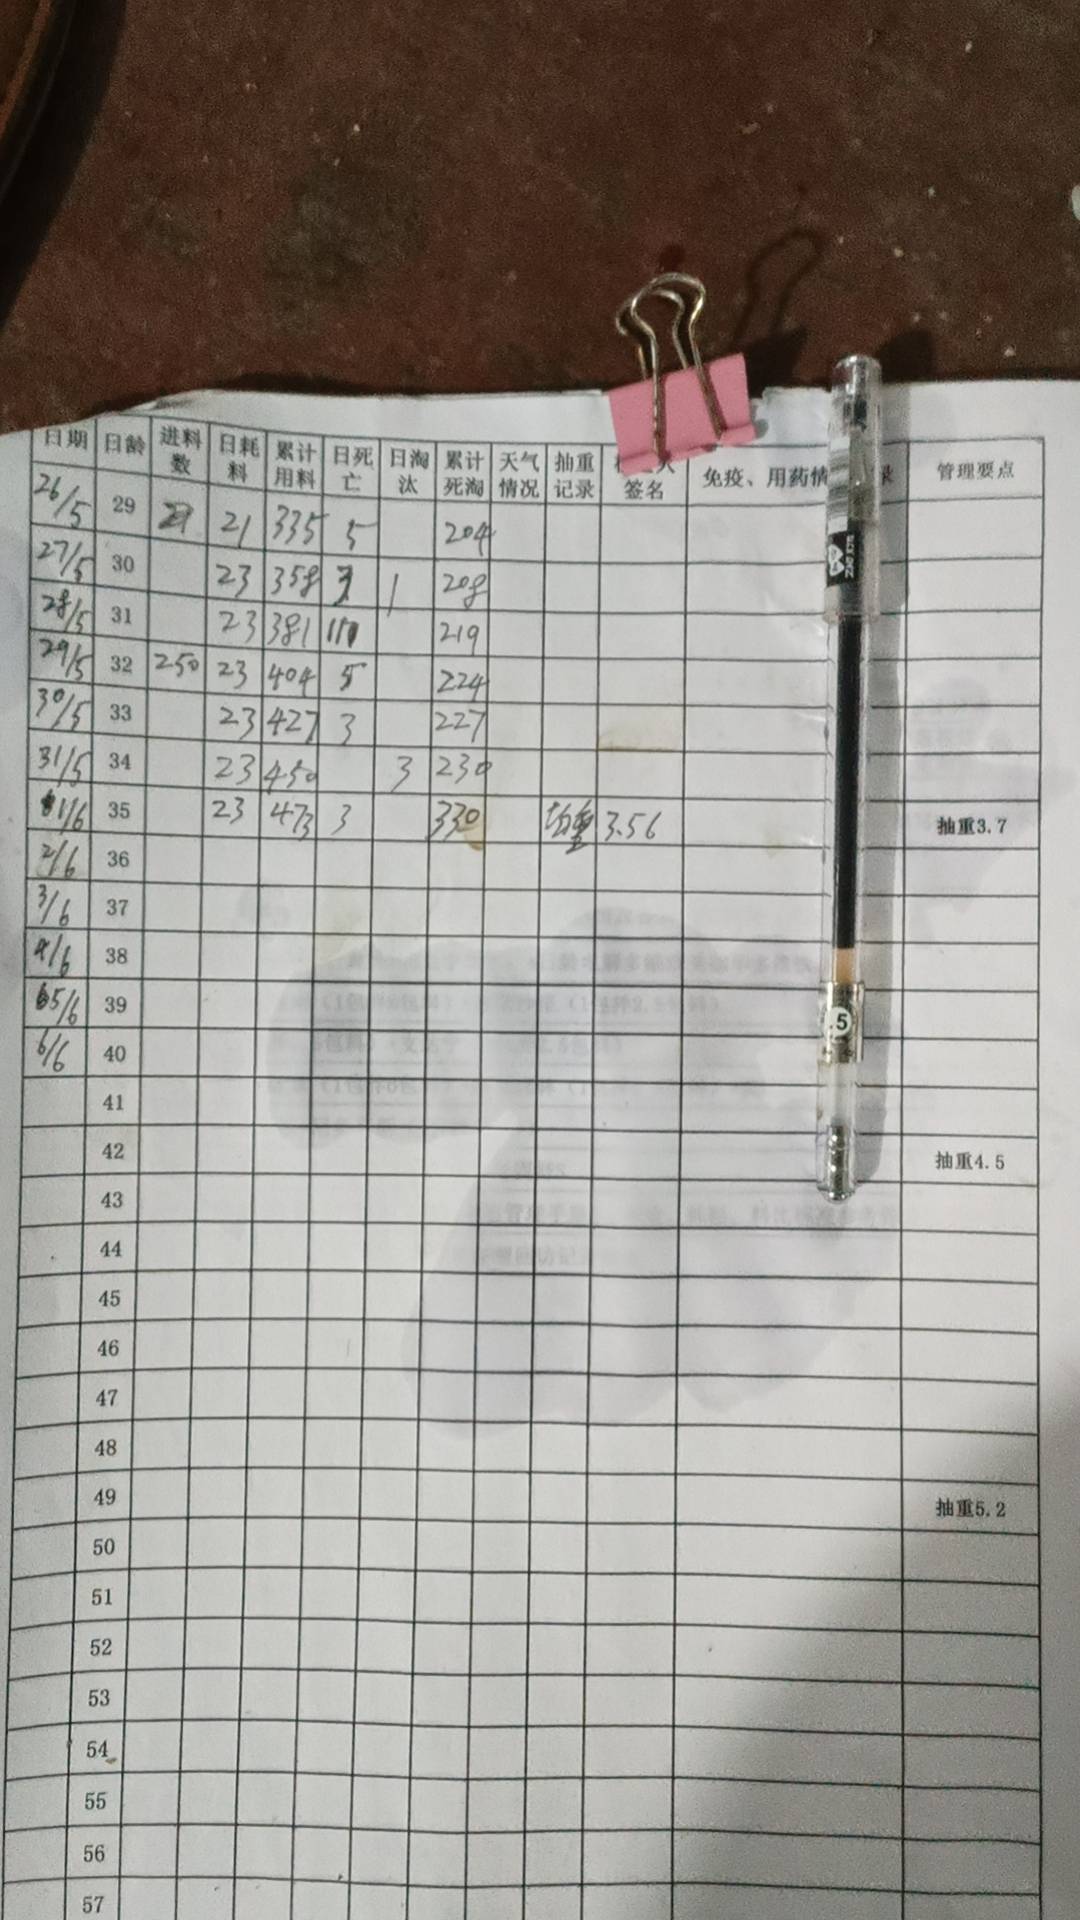 日期 日龄 进料数 日耗料 累计用料 日死亡 日淘汰 累计死淘 天气情况 抽重记录 签名 免疫、用药情 录 管理要点
26/5 29 21 335 5 204
27/5 30 23 358 3 1 208
28/5 31 23 381 11 219
29/5 32 250 23 404 5 224
30/5 33 23 427 3 227
31/5 34 23 450 3 230
1/6 35 23 473 3 330 均重 3.56 抽重3.7
2/6 36
3/6 37
4/6 38
5/6 39
6/6 40
41
42 抽重4.5
43
44
45
46
47
48
49 抽重5.2
50
51
52
53
54
55
56
57
5